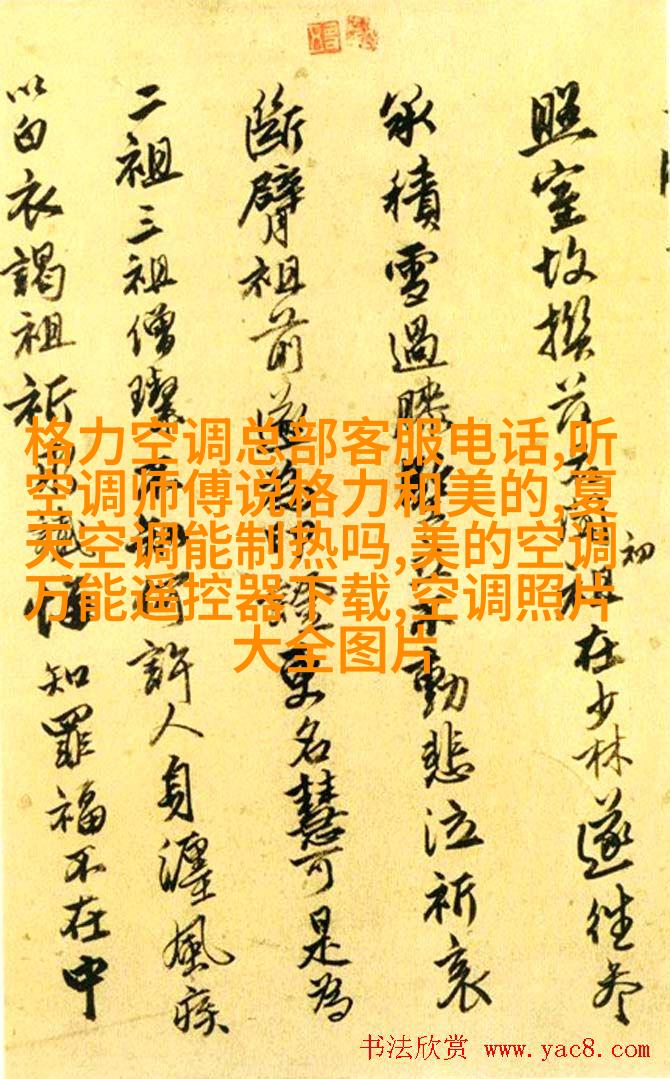 照室故祖在少林遂往參
初
承積雪過膝動悲泣祈哀
斷臂祖前遂印證更名慧可是為
二祖三祖僧璨許人身纏風疾
以白衣謁祖祈知罪福不在中
格力空调总部客服电话,听
空调师傅说格力和美的,夏
天空调能制热吗,美的空调
万能遥控器下载,空调照片
大全图片
书法欣赏 www.yac8.com